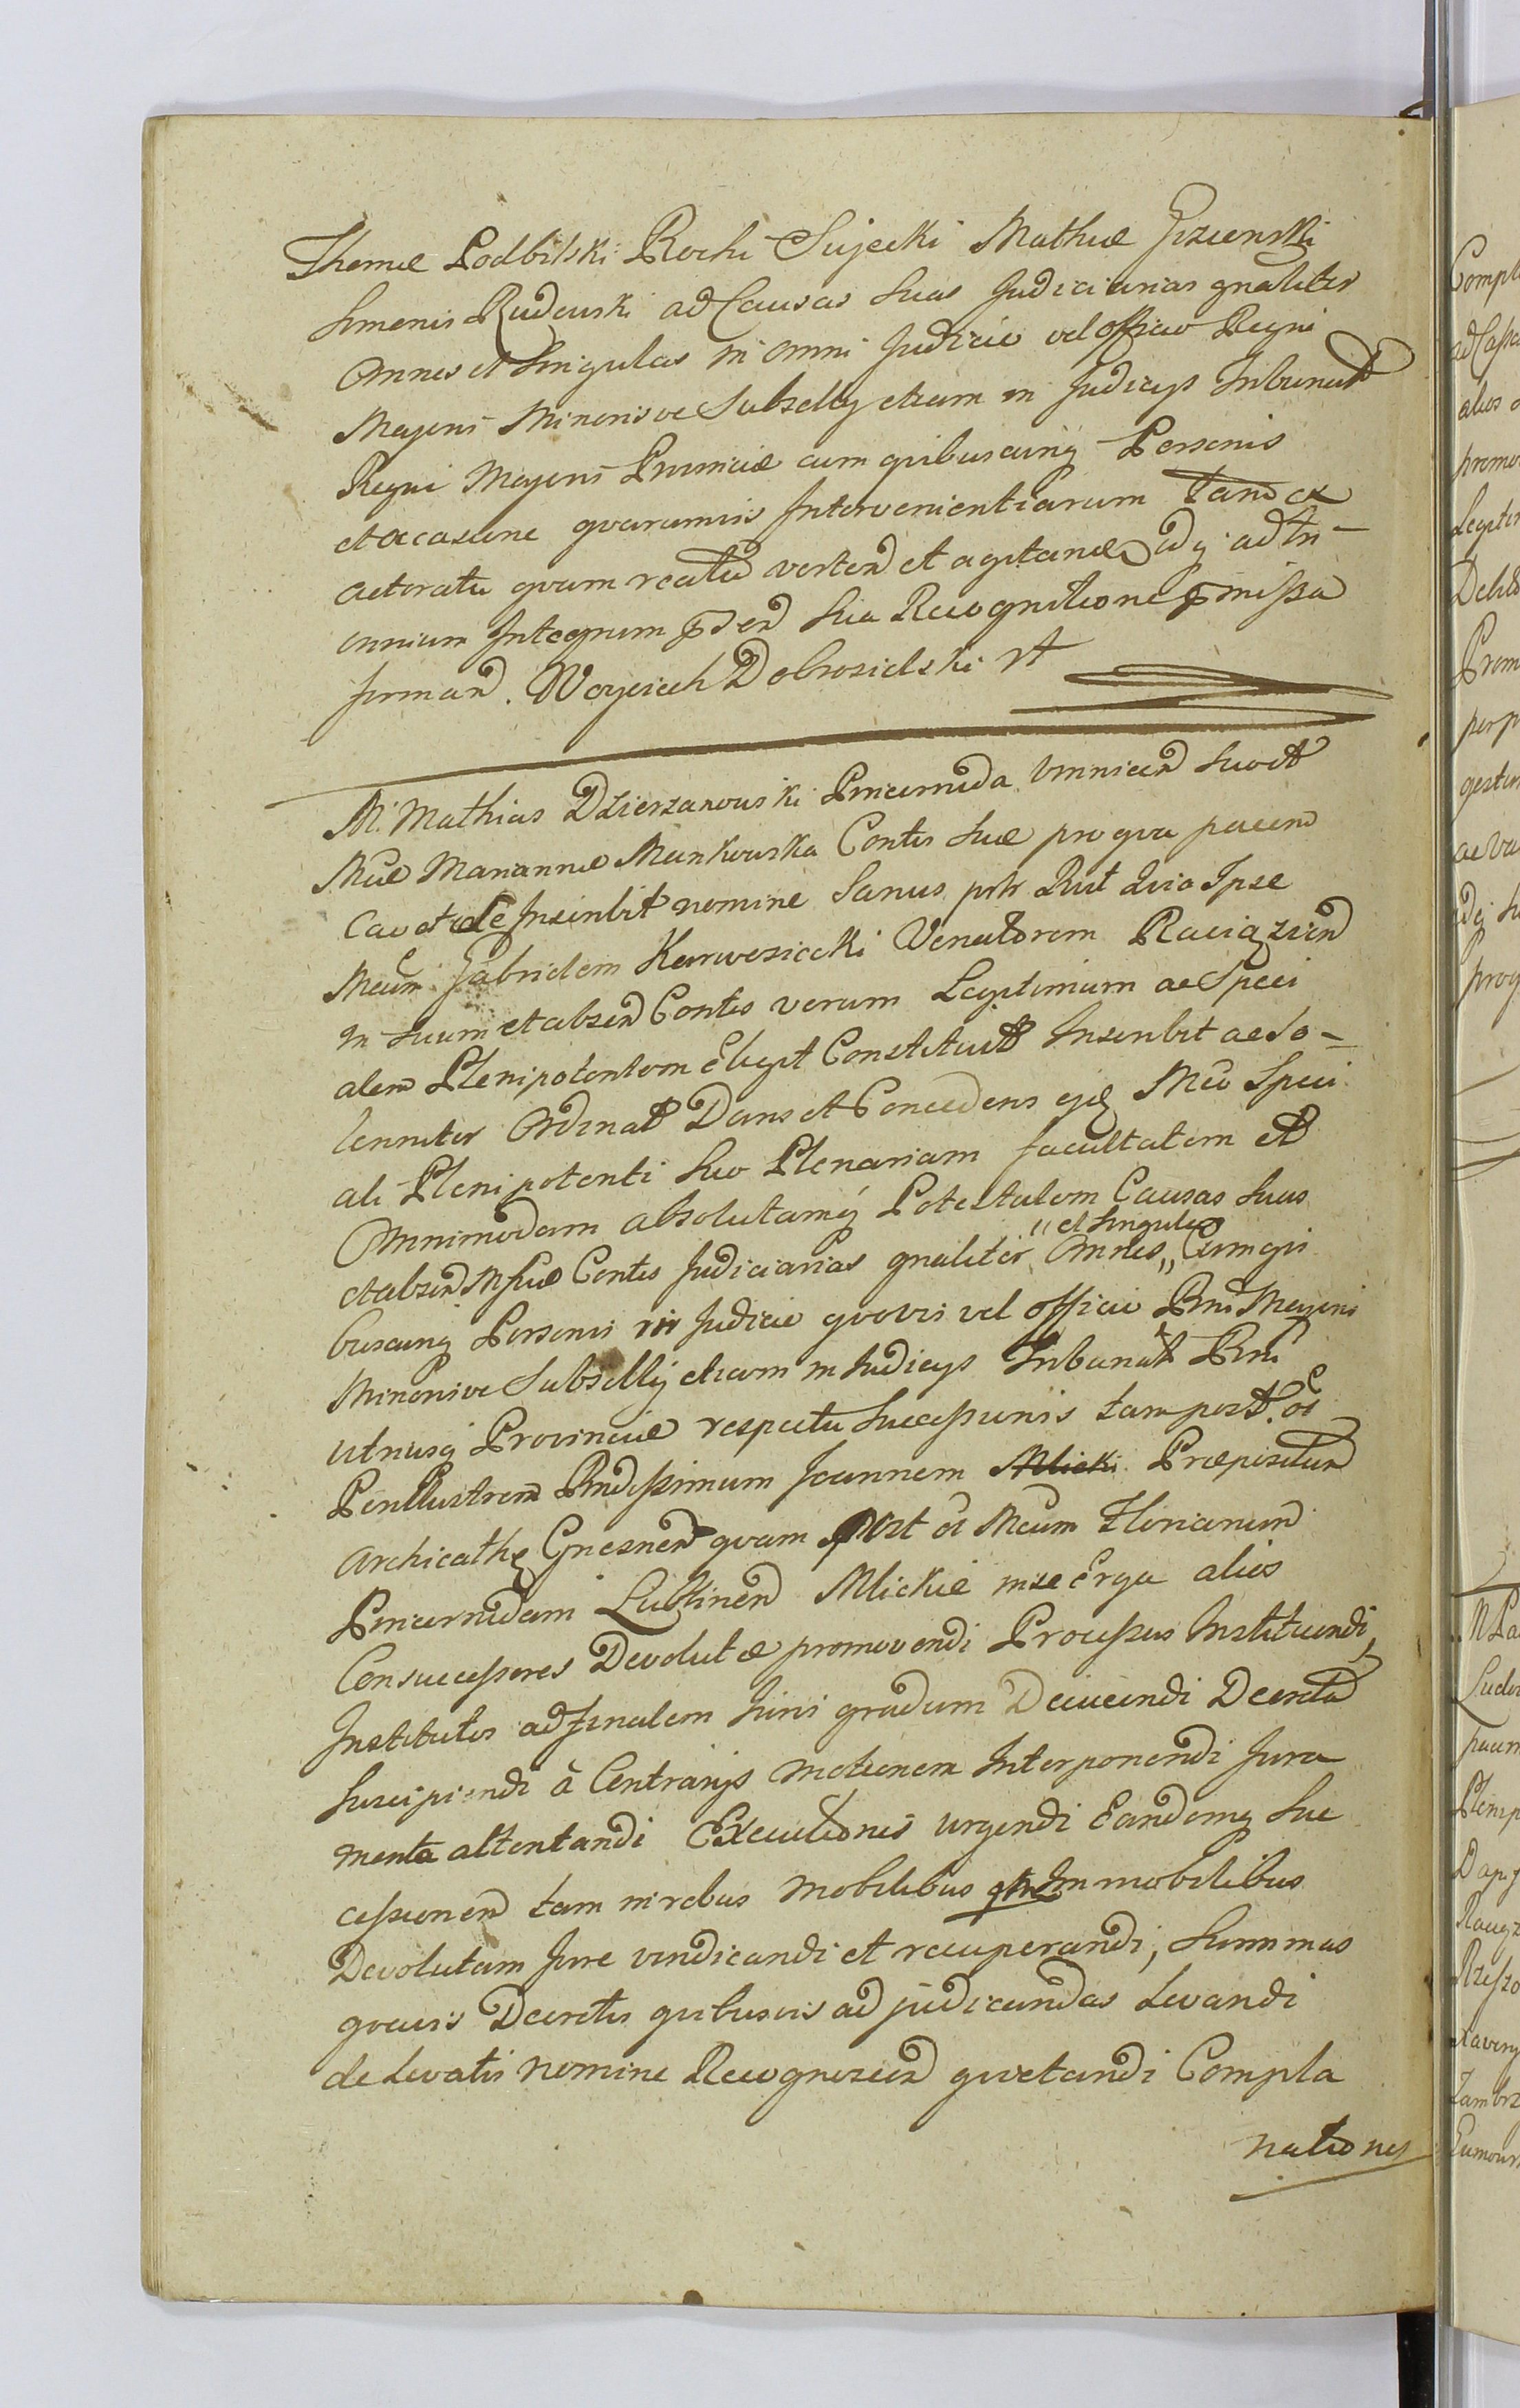 Thomæ Podbilski Rochi Sujecki Mathiæ
Simonis Rudowski ad Causas Suas Judiciarias gnaliter
Omnes et Singulas in omni Judicio vel Officio Regni
Majoris Minorisve Subsellij etiam in Judicijs Tribunal
Regni Majoris Provinciæ cum quibuscunq Personis
et occasione quarumvis Intervenientiarum Tam ex
actoratu quam reatu verten et agitan adq
omnium Integrum Sua Recognitione pmissa
firman. Woyciech Dobrosielski
M. Mathias Dzierzanowski Pincernida suo et
Mcæ Mariannæ Mankowska Contis Suæ pro qua pacem
cavet et de Inscribit nomine Sanus Quia Ipse
Mcum Gabrielem Karwosiecki Venatorem Raciązien
in Suum et absen Contis verum Legitimum ac Speci
alem Plenipotentem Elegit Constituit Inscribit ac So-
lenniter Ordinat Dans et Concedens Mco Speci
ali Plenipotenti Suo Plenariam facultatem et
Omnimodam absolutamq Potestatem Causas Suas
et absen Contis Judiciarias gnaliter Omnes „et Singulas„ Cum qui
buscunq Personis in Judicio quovis vel officio Rni Majoris
Minorisve Subsellij etiam in Judicijs Tribunal Rni
utriusq Provinciæ respectu Successionis tam post oi
Perillustrem Rndissimum Joannem Mlicki Præpositum
Archicathe Gnesnen quam post oi Mcum Florianum
Pincernidam Lublinen Mlickie in se erga alios
Consuccessores Devolutæ promovendi Processus Instituendi,
Institutos ad finalem Juris gradum Deducendi Decreta
Suscipiendi à Contrarijs motionem Interponendi Jura
menta attentandi Executiones urgendi Eandemq Suc
cessionem tam in rebus Mobilibus qm Immobilibus
Devolutam Jure vindicandi et recuperandi, Summas
quasvis Decretis quibusvis adjudicandas Levandi
de Levatis nomine Recognoscen quietandi Compla
nationes